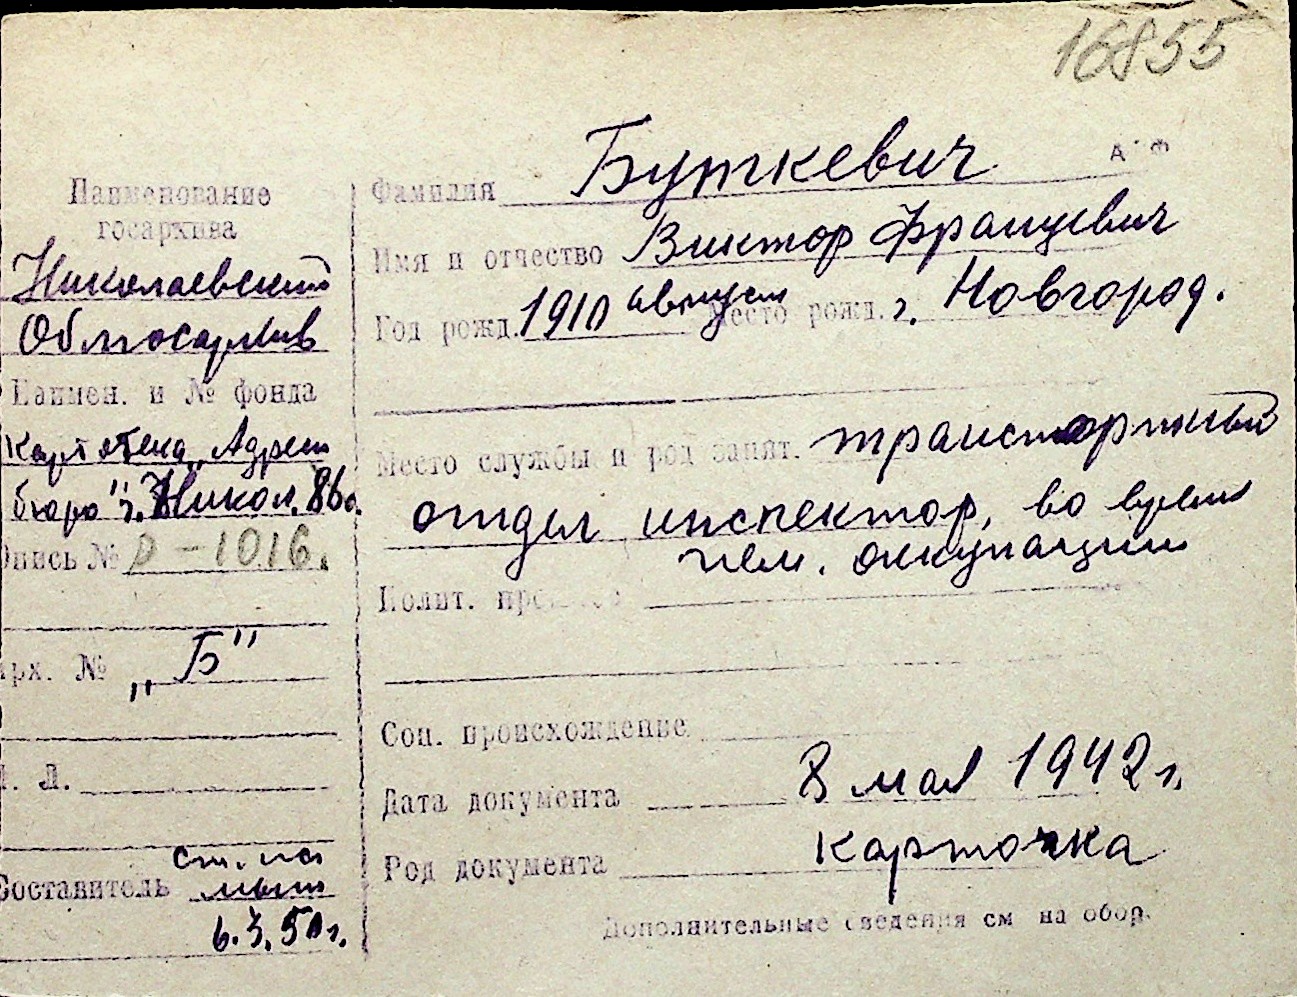 16855
Наименование
госархива
Николаевский
Облгосархив
Наимен. и № фонда
Картотека „Адресн
бюро" г. Никол.
Опись № Р-1016.
Арх. № „Б"
Л. Л.
Составитель
6.3.50г.
А Ф
Фамилия Буткевич
Имя и отчество Виктор Францевич
Год рожд. 1910 август Место рожд. г. Новгород.
Место службы и род занят. транспортный
отдел инспектор, во время
нем. оккупации
Полит.
Соц. происхождение
Дата документа 8 мая 1942 г.
Род документа карточка
Дополнительные сведения см на обор.